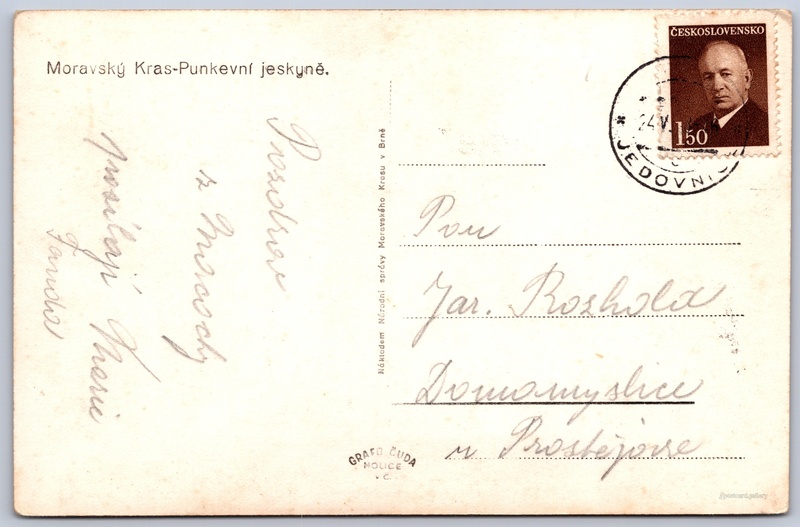 Moravský Kras-Punkevní jeskyně.
Pozdrav
z Macochy
posílají
Fanda
ČESKOSLOVENSKO
1 50
24 V.
JEDOVNIC
Nákladem Národní správy Moravského Krasu v Brně
Pan
Jar. Rozhold
Domamyslice
u Prostějova
GRAFO ČUDA
HOLICE
v Č.